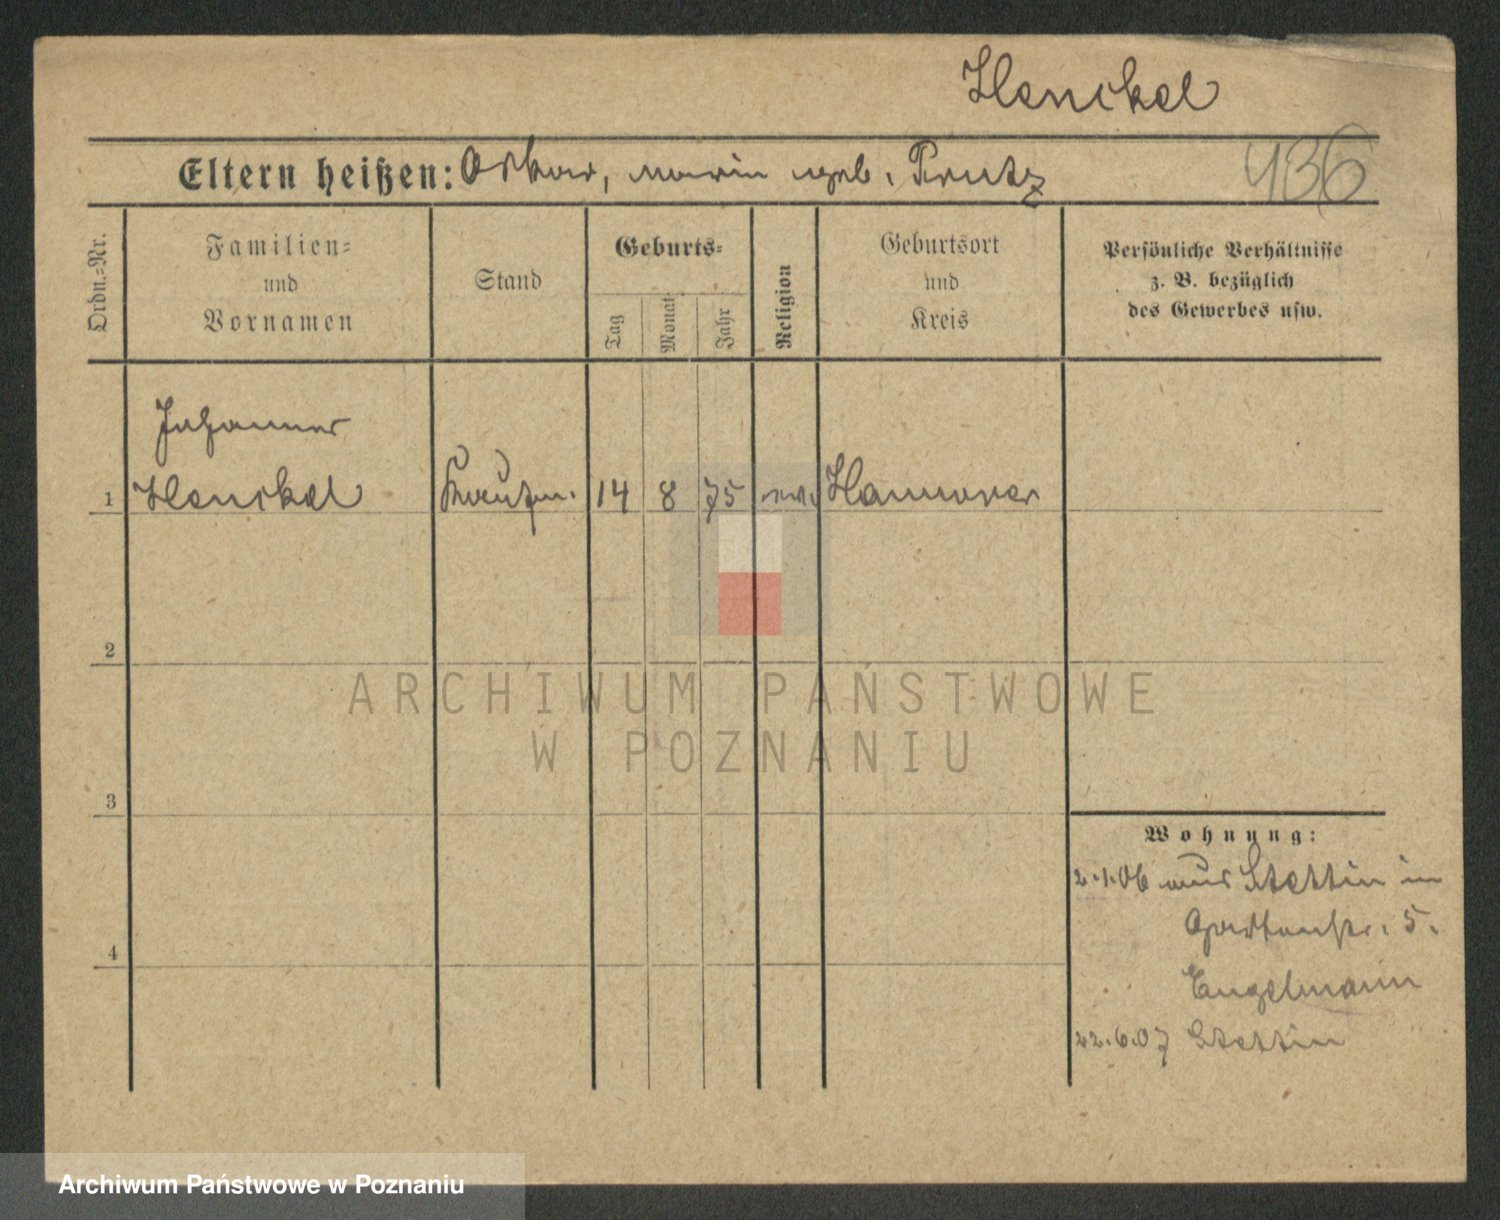 Henckel
Eltern heißen: Oskar, Marie geb. Prutz
436
Ordn.-Nr.
Familien- und Vornamen
Stand
Geburts-
Tag
Monat
Jahr
Religion
Geburtsort und Kreis
Persönliche Verhältnisse
z. B. bezüglich
des Gewerbes usw.
Johannes
1 Henckel Kaufm. 14 8 75 ev. Hannover
2
ARCHIWUM PAŃSTWOWE
W POZNANIU
3
Wohnung:
2.1.06 aus Stettin in
Gartenstr. 5.
4
Engelmann
22.6.07 Stettin
Archiwum Państwowe w Poznaniu